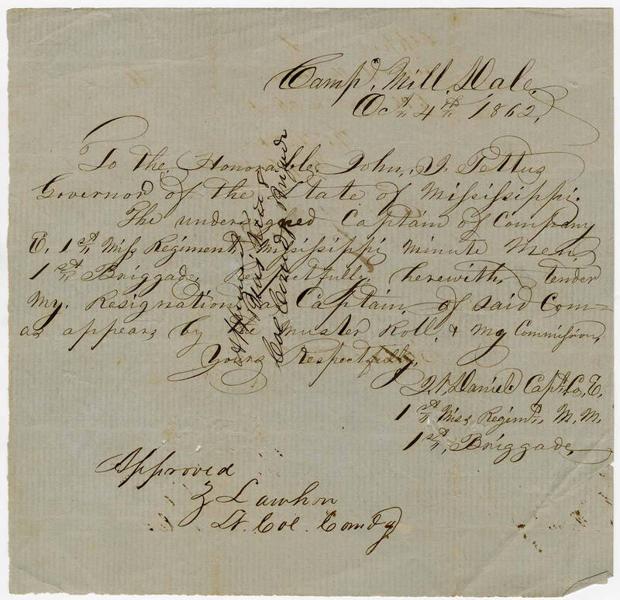 Camp, Mill Dale,
Oct 4th 1862,
To the Honorable, John, J. Pettus
Governor of the State of Mississippi.
The undersigned Captain of Company
E, 1st Miss Regiment Mississippi Minute Men,
1st Briggade, Respectfully herewith, tender
My, Resignation, as Captain, of said Com-
as appears by the Muster Roll, & My Commission,
Yours Respectfully,
Daniel Capt, Co, E.
1st Miss Regimt, M. M.
1st, Briggade,
Approved
Z Lawhon
Lt. Col. Comdg
Approved
Col Comdg Brigade